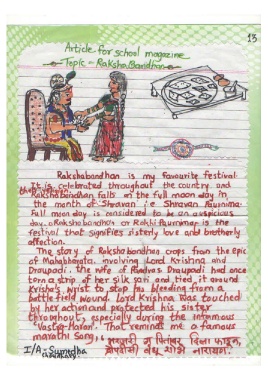 13
Article for school magazine
Topic - Rakshabandhan
Rakshabandhan is my favourite festival
It is celebrated throughout the country and
Rakshabandhan falls in the full moon day in
the month of Shravan i.e Shravan Paurnima.
Full moon day is considered to be an auspicious
day. Rakshabandhan or Rakhi Paurnima is the
festival that signifies sisterly love and brotherly
affection.
The story of Rakshabandhan crops from the epic
of Mahabharata, involving Lord Krishna and
Draupadi. the wife of Pandvas Draupadi had once
torn a strip of her silk sari and tied, it around
Krishna's wrist to stop the bleeding from a
battlefield wound. Lord Krishna was touched
by her action and protected his sister
throughout, especially during the infamous
"Vastra Haran". That reminds me a famous
marathi Song :
भरजरी ग पितांबर दिला फाडून,
द्रौपदीसी बंधू शोभे नारायण.
I/A- Sumedha
Choudhary